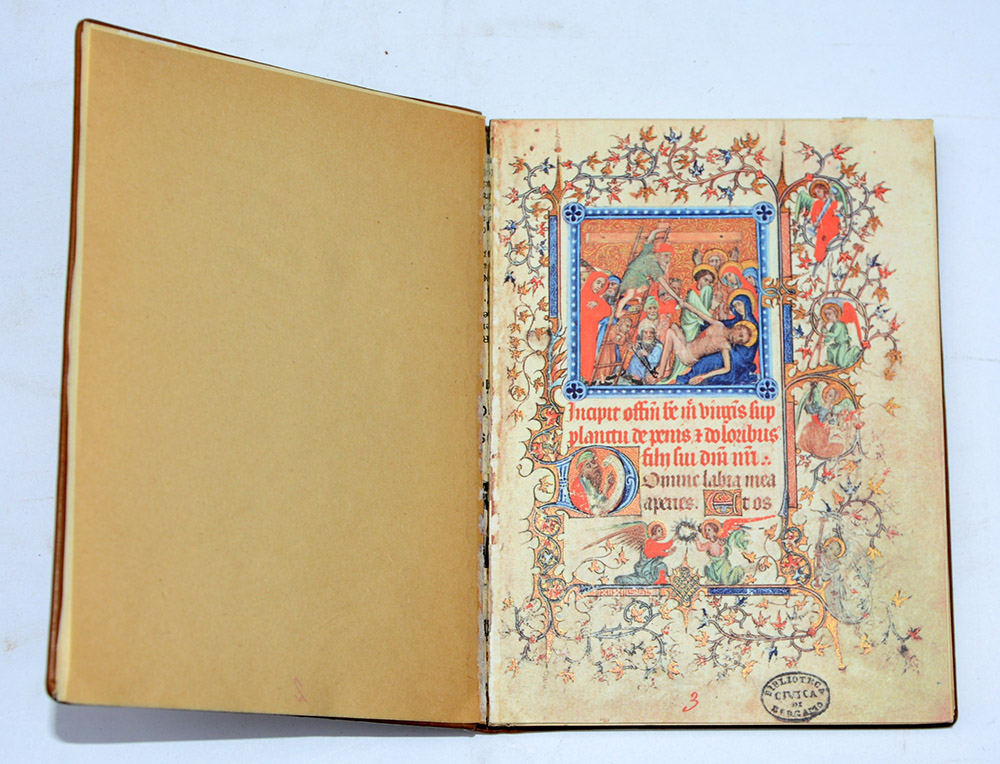 Incipit offm̄ be m̄ virgīs sup
planctu de penis ⁊ doloribus
filij sui dm̄i nr̄i :.
Domine labia mea
aperies. Et os
3
BIBLIOTECA
CIVICA
DI
BERGAMO